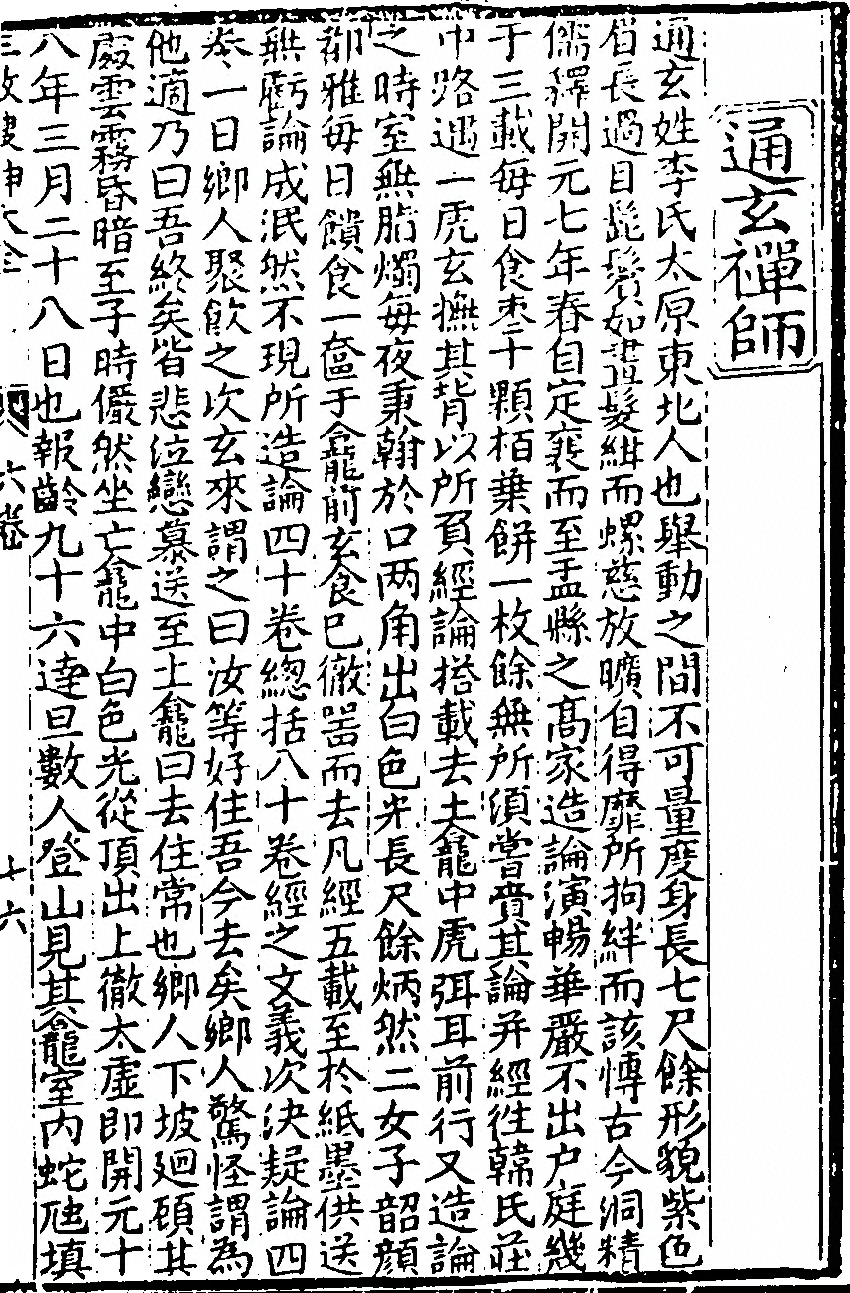 通玄禪師
通玄姓李氏太原東北人也舉動之間不可量度身長七尺餘形貌紫色
眉長過目髭鬢如畫髮紺而螺慈放曠自得靡所拘絆而該博古今洞精
儒釋開元七年春自定襄而至盂縣之高家造論演暢華嚴不出户庭幾
于三載每日食棗十顆栢葉餅一枚餘無所須嘗賫其論并經徃韓氏莊
中路遇一虎玄撫其背以所負經論搭載去土龕中虎弭耳前行又造論
之時室無脂燭每夜秉翰於口两角出白色光長尺餘炳然二女子韶顔
都雅每日饋食一奩于龕前玄食已徹噐而去凡經五載至於紙墨供送
無虧論成泯然不現所造論四十卷總括八十卷經之文義次決疑論四
卷一日鄉人聚飲之次玄來謂之曰汝等好住吾今去矣鄉人驚怪謂為
他適乃曰吾終矣皆悲泣戀慕送至土龕曰去住常也鄉人下坡廻顧其
處雲霧昏暗至子時儼然坐亡龕中白色光從頂出上徹太虛即開元十
八年三月二十八日也報齡九十六達旦數人登山見其龕室内蛇虺填
三教搜神大全 六卷 十六